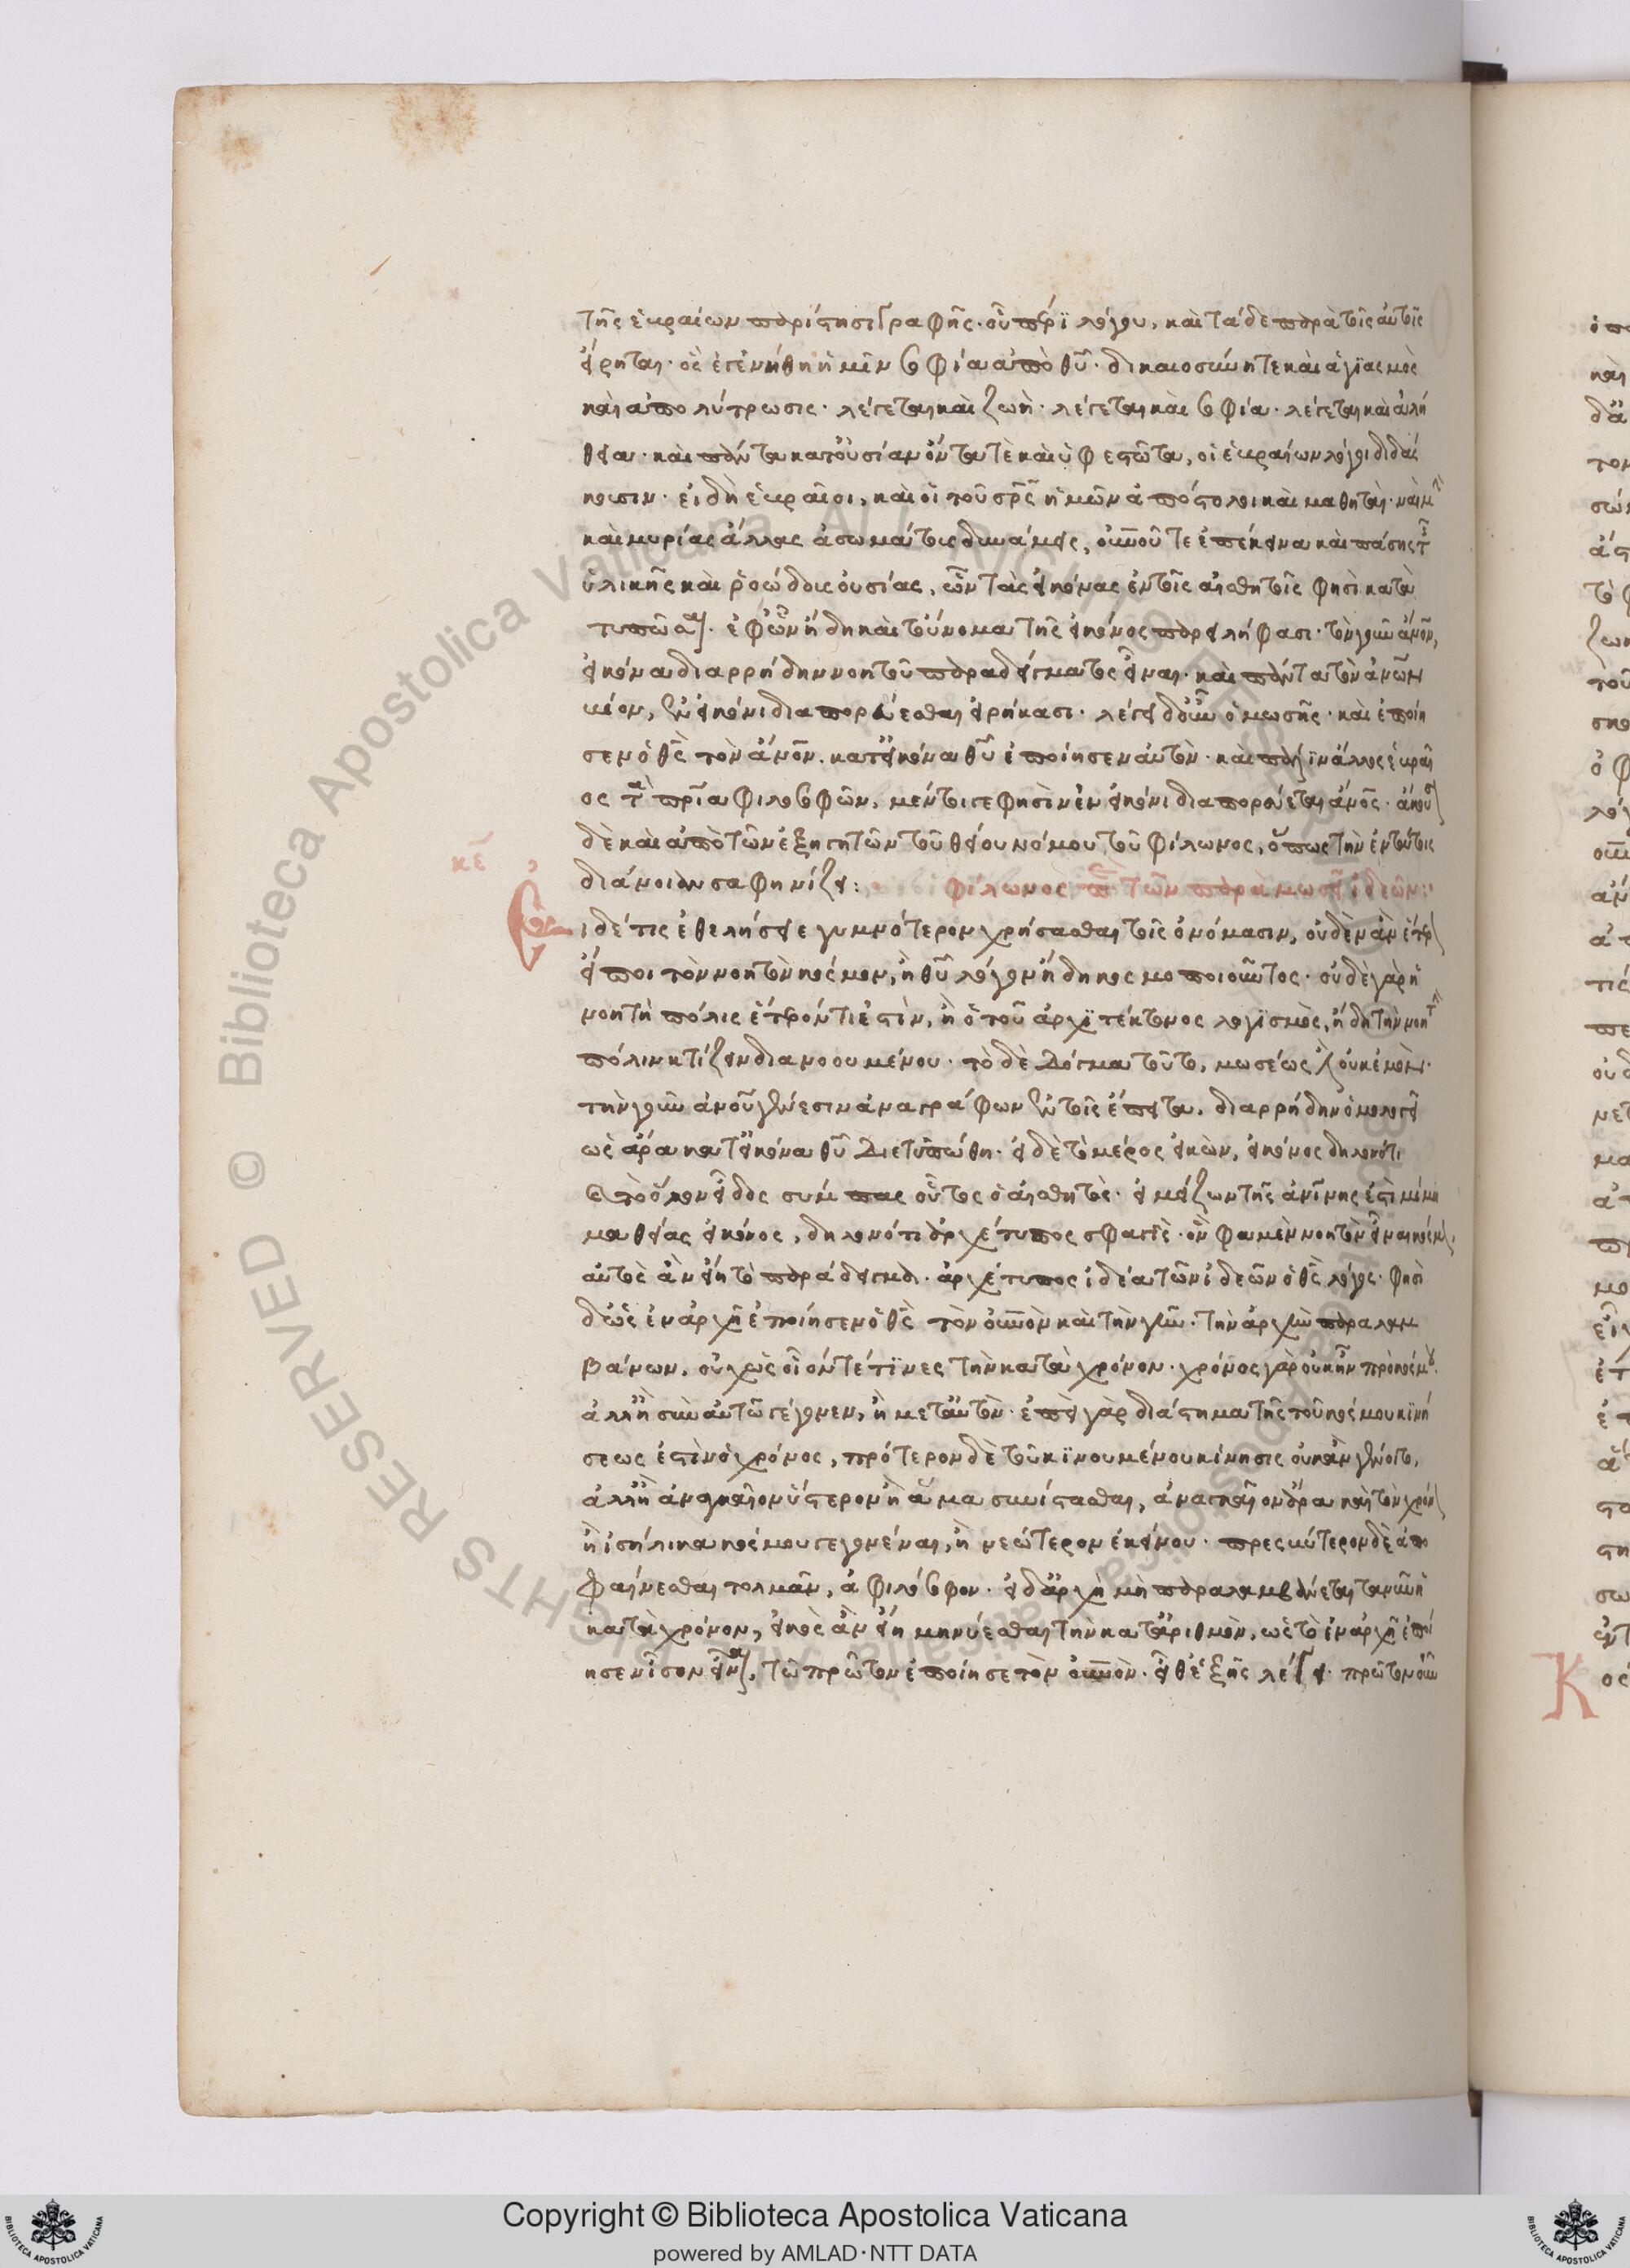 τῆς ἑβραίων παρίστησι γραφῆς· οὗ πέρϊ λόγου, καὶ τάδε παρὰ τοῖς αὐτοῖς
εἴρηται· ὃς ἐγενήθη ἡμῖν σοφία ἀπὸ θυ· δικαιοσύνη τε καὶ ἁγϊασμὸς
καὶ ἀπολύτρωσις· λέγεται καὶ ζωὴ· λέγεται καὶ σοφία· λέγεται καὶ ἀλή
θεια· καὶ πάντα κατ' οὐσίαν ὄντα τὲ καὶ ὑφεστῶτα, οἱ ἑβραίων λόγοι διδά
σκουσιν· εἰ δὴ ἑβραῖοι, καὶ οἱ τοῦ σρς ἡμῶν ἀπόστολοι καὶ μαθηταὶ· ναὶ μ
καὶ μυρίας ἄλλας ἀσωμάτους δυνάμεις, οὐνοῦ τε ἐπέκεινα καὶ πάσης τ
ὑλικῆς καὶ ῥοώδους οὐσίας, ὧν τὰς εἰκόνας ἐν τοῖς αἰσθητοῖς φησὶ κατα
τυπῶσαι· ἐφ' ὧν ἤδη καὶ τοὔνομα τῆς εἰκόνος παρειλήφασι· τὸν γοῦν ἄνον,
εἰκόνα διαρρήδην νοητοῦ παραδείγματος εἶναι· καὶ πάντα τὸν ἀνων
βίον, ἐν εἰκόνι διαπορεύεσθαι εἰρήκασι· λέγει δ' οὖν ὁ μωσῆς· καὶ ἐποίη
σεν ὁ θς τὸν ἄνον· κατ' εἰκόνα θυ ἐποίησεν αὐτὸν· καὶ πάλϊν ἄλλος ἑβραῖ
ος τὰ πρια φιλοσοφῶν, μέντοιγε φησὶν ἐν εἰκόνι διαπορεύεται ἄνος· ἄκουε
δὲ καὶ ἀπὸ τῶν ἐξηγητῶν τοῦ θείου νόμου τοῦ φίλωνος, ὅπως τὴν ἐν τούτοις
διάνοιαν σαφηνίζει: φίλωνος περὶ τῶν παρὰ μωσεῖ ἰδεῶν:
κε
Εἰ δέ τις ἐθελήσειε γυμνότερον χρήσασθαι τοῖς ὀνόμασιν, οὐδὲν ἂν ἕτερ
εἴποι τὸν νοητὸν κόσμον, ἢ θυ λόγον ἤδη κοσμοποιοῦντος· οὐδὲ γὰρ ἡ
νοητὴ πόλις ἕτερόν τι ἐστὶν, ἢ ὁ τοῦ ἀρχϊτέκτονος λογϊσμὸς, ἤδη τὴν νοητ
πόλιν κτίζειν διανοουμένου· τὸ δὲ δόγμα τοῦτο, μωσέως ἐστὶν οὐκ ἐμὸν·
τὴν γοῦν ἀνου γένεσιν ἀναγράφων ἐν τοῖς ἔπειτα, διαρρήδην ὁμολογεῖ
ὡς ἄρα κατ' εἰκόνα θυ διετυπώθη· εἰ δὲ τὸ μέρος εἰκὼν, εἰκόνος δηλονότι
καὶ τὸ ὅλον εἶδος σύμπας οὗτος ὁ αἰσθητὸς· εἰ μείζων τῆς ἀνινης ἐστὶ μίμη
μα θείας εἰκόνος, δηλονότι ἀρχέτυπος σφαγὶς· ὃν φαμὲν νοητὸν εἶναι κόσμ,
αὐτὸς ἂν εἴη τὸ παράδειγμα· ἀρχέτυπος ἰδέα τῶν ἰδεῶν ὁ θς λόγος· φησὶ
δ' ὡς ἐν ἀρχῇ ἐποίησεν ὁ θς τὸν οὐνὸν καὶ τὴν γῆν· τὴν ἀρχὴν παραλαμ
βάνων, οὐχ ὡς οἴονταί τϊνες τὴν κατὰ χρόνον· χρόνος γὰρ οὐκ ἦν πρὸ κόσμου·
ἀλλ' ἢ σὺν αὐτῶ γέγονεν, ἢ μετ' αὐτὸν· ἐπεὶ γὰρ διάστημα τῆς τοῦ κόσμου κϊνή
σεως ἐστὶν ὁ χρόνος, πρότερον δὲ τοῦ κϊνουμένου κίνησις οὐκ ἂν γένοιτο,
ἀλλ' ἢ ἀναγκαῖον ὕστερον ἢ ἅμα συνίστασθαι, ἀναγκαῖον ἄρα καὶ τὸν χρόν
ἢ ἰσήλικα κόσμου γεγονέναι, ἢ νεώτερον ἐκείνου· πρεσβύτερον δὲ ἀπο
φαίνεσθαι τολμᾶν, ἀφιλόσοφον· εἰ δ' ἀρχὴ μὴ παραλαμβάνεται τανῦν ἡ
κατὰ χρόνον, εἰκὸς ἂν εἴη μηνύεσθαι τὴν κατ' ἀριθμὸν, ὡς τὸ ἐν ἀρχῇ ἐποί
ησεν ἴσον εἶναι, τῶ πρῶτον ἐποίησε τὸν οὐνὸν· εἶθ' ἑξῆς λέγει· πρῶτον οὖν